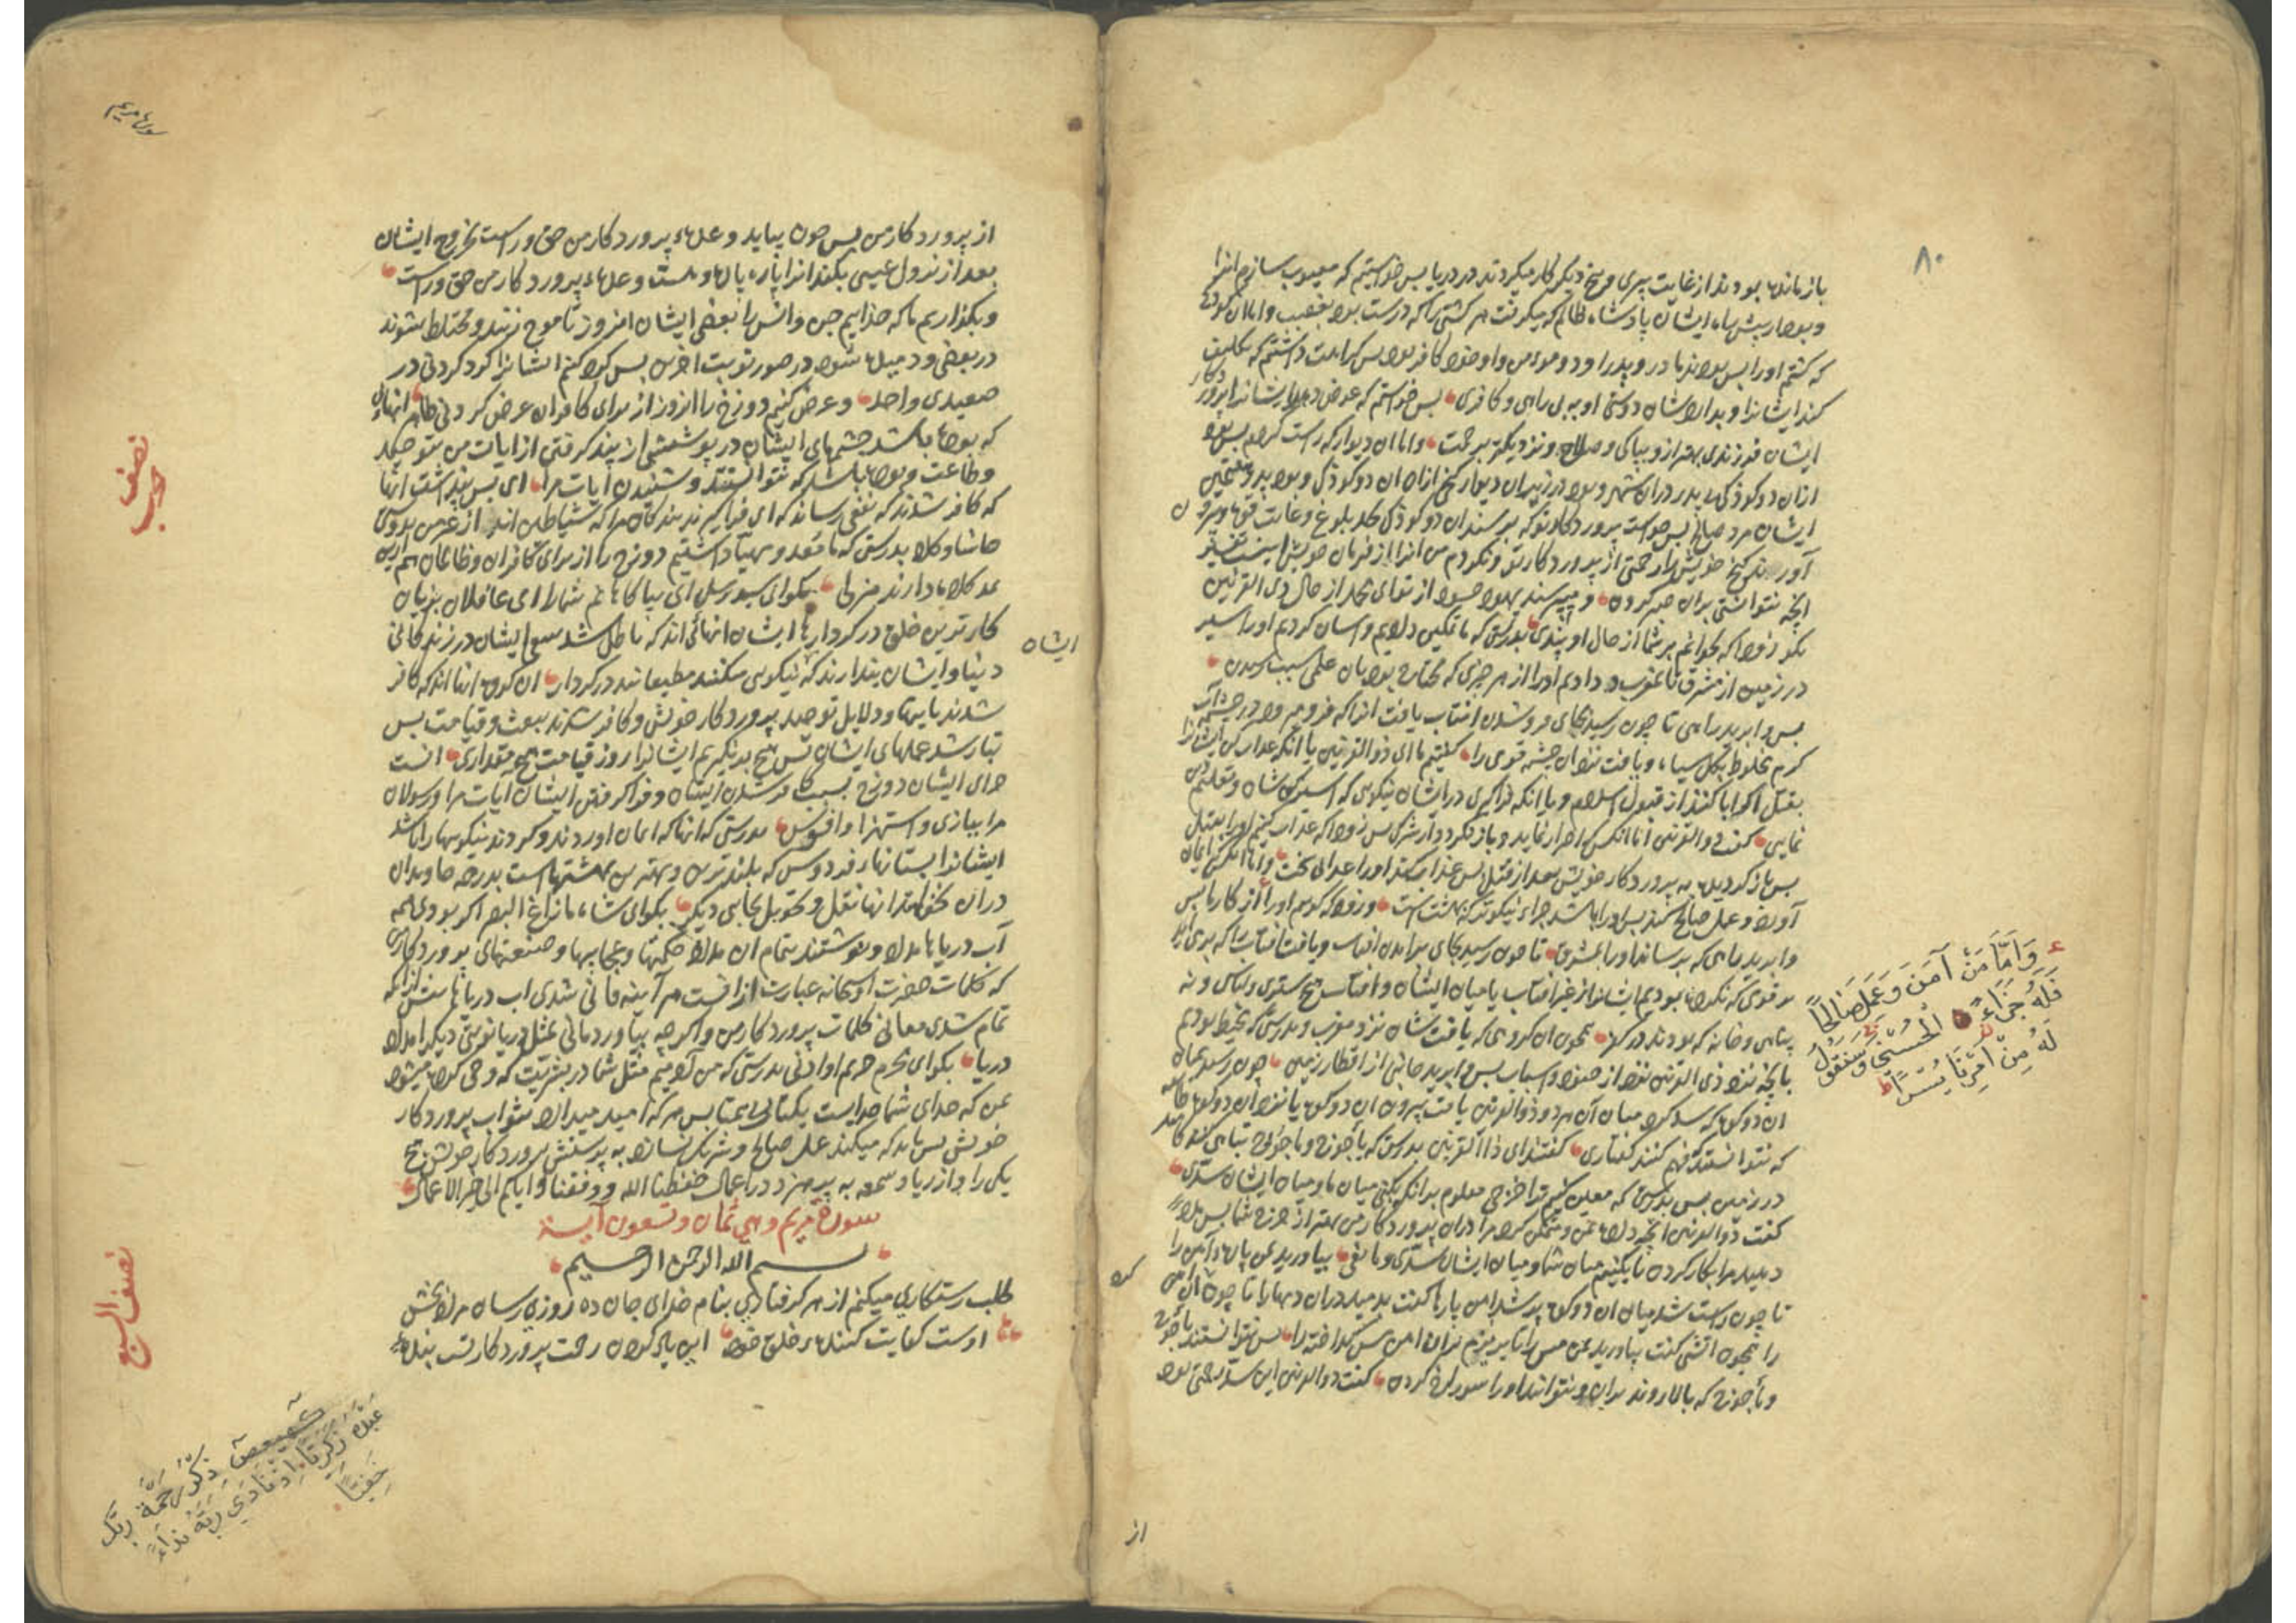 ۸۰
باز ماندہ بودند از غایت پیری و پنج دیگر کار میکردند در دریا پس خواستم که معیوب سازم انرا
وبود در پیش راه ایشان پادشاه ظالم که میگرفت هر کشتی را که درست بود بغصب واما ان کودک
که کشتم اورا پس بودند مادر و پدر او دو مومن واو خود کافر بود پس کراهت داشتم که تکلیف
کند ایشانرا وبدارد ایشان دوستی او به بی راهی وکافری پس خواستم که عوض دهد ایشانرا پرورد کار
ایشان فرزندی بهتر ازو بپاکی وصلاح ونزدیکتر برحمت واما ان دیوار که راست کردم پس بود
ازان دو کودک بی پدر دران شهر وبود در زیر ان دیوار گنج ازان ان دو کودک وبود پدر
ایشان مرد صالح پس خواست پرورد کار تو که برسند ان دو کودک بحد بلوغ وغایت قوه وبیرون
آورند گنج خویش را رحمتی از پرورد کار تو ونکردم من انرا از فرمان خویش اینست تفسیر
انچه نتوانستی بران صبر کردن ومیپرسند یهود از تو ای محمد از حال ذی القرنین
بکو زود که بخوانم بر شما از حال او پندی بدرستی که ما تمکین دادیم واسان کردیم اورا سیر
در زمین از مشرق تا مغرب ودادیم اورا از هر چیزی که محتاج بود بان علمی سبب رسیدن
پس را برید راهی تا چون رسید بجای فرو شدن افتاب یافت انرا که فرو میرود در چشمه آب
گرم مخلوط بگل سیاه ویافت نزد ان چشمه قومی را گفتیم ما ای ذوالقرنین یا انکه عذاب کن ایشانرا
بقتل اگر ابا کنند از قبول اسلام ویا انکه فراگیری در ایشان نیکویی که اسیر کن شان وتعلیم
نمایی گفت ذوالقرنین اما انکس اصرار نماید وباز نگردد از شرک پس زود که عذاب کنیم اورا بقتل
پس باز گردیده به پرورد کار خویش بعد از قتل پس عذاب کند اورا عذابی سخت واما انکس ایمان
آورد وعمل صالح کند پس اورا باشد جزاء نیکوتر که بهشت است وزود که گویم اورا از کارها پس
را برید راهی که برساند اورا بمشرق تا چون رسید بجای برامدن افتاب ویافت افتاب را که برمی اید
بر قومی که نکرده بودیم ایشانرا از غیر افتاب یا میان ایشان وافتاب هیچ ستری ولباس ونه
بنایی وخانه که بودند در کوه همچون ان گروهی که یافت شان نزد مغرب وبدرستی که محیط بودیم
بانچه نزد ذی القرنین بود از جنود واسباب پس را برید جانبی از اقطار زمین چون رسید میان
ان دو کوه که سد کرد میان آن هر دو ذوالقرنین یافت بیرون ان دو کوه یا نزد ان دو کوه
که نتوانستند که فهم کنند گفتاری گفتند ای ذا القرنین بدرستی که یاجوج وماجوج تباهی کنندگانند
در زمین پس بدرستی که معین کنیم ترا خرجی معلوم برانکه بکنی میان ما ومیان ایشان سدی
گفت ذوالقرنین انچه داده من وممکن کرد مرا دران پرورد کار من بهتر از خرج شما پس مدد
دهید مرا بکار کردن تا بکنیم میان شما ومیان ایشان سدی ومانعی بیاورید بمن پارهاء آهن را
تا چون راست شد میان ان دو کوه پر شد از آهن پارها گفت بدمید دران دمها را تا چون آهن
را همچون اتشی گفت بیاورید بمن مس را تا بریزم بران اهن مس گداخته را پس نتوانستند یاجوج
وماجوج که بالا روند بران ونتوانند اورا سوراخ کردن گفت ذوالقرنین این سد رحمتی بود
وَاَمَّا مَنْ آمَنَ وَعَمِلَ صَالِحًا
فَلَهُ جَزَاءً الْحُسْنٰى وَسَنَقُولُ
لَهُ مِنْ اَمْرِنَا يُسْرًا
از
سوره مریم
از پرورد کار من پس چون بیاید وعدهء پرورد کار من حق وراست بخروج ایشان
بعد از نزول عیسی بکند انرا پاره پاره وهست وعدهء پرورد کار من حق وراست
وبگذاریم ما که خداییم جن وانس را بعضی ایشان امروز تا موج زنند ومختلط شوند
در بعضی ودمیده شود در صور نوبت اخرین پس گرد کنیم ایشانرا گرد کردنی در
صعیدی واحد وعرض کنیم دوزخ را انروز از برای کافران عرض کردنی ظاهر انهائی
که بوده باشد چشمهای ایشان در پوششی از پند گرفتن از ایات من بتوحید
وطاعت وبوده باشد که نتوانستند وشنیدن ایات مرا ای پس پنداشتند انها
که کافر شدند که نفعی رساند که ای فراگیرند بندگان مرا که شیاطین اند از غیر من
حاشا وکلا بدرستی که ما معد ومهیا داشتیم دوزخ را از برای کافران وظالمان
منزل بکو ای سید رسل ائی بیاگاهانم شما را ای غافلان بزیان
کارترین خلق در کردارها ایشان انهائی اند که باطل شد سعی ایشان در زندگانی
ایشان
دنیا وایشان پندارند که نیکویی میکنند مطیعانند در کردار ان گروه انها اند که کافر
شدند بایتها ودلایل توحید پرورد کار خویش وکافر شدند ببعث وقیامت پس
تباه شد عملهای ایشان پس هیچ برنگیریم ایشانرا روز قیامت هیچ مقداری انست
جزای ایشان دوزخ بسبب کافر شدن ایشان وفراگرفتن ایشان ایات مرا ورسولان
مرا ببازی واستهزا وافسوس بدرستی که انها که ایمان اوردند وکردند نیکوییها را باشد
ایشانرا بستانهاء فردوس که بلندترین وبهترین بهشتهاست بدرجه جاویدان
دران نخواهند ازانها نقل وتحویل بجایی دیگر بکو ای شاه مازاغ البصر اگر بودی همه
آب دریاها مداد ونوشتند بتمام ان مداد حکمتها وعجایبها وصنعتهای پرورد کار من
که کلمات حضرت او سبحانه عبارت ازانست هر آینه فانی شدی اب دریاها پیش ازانکه
تمام شدی معانی کلمات پرورد کار من واگر چه بیاوردمانی بمثل دریا نوبتی دیگر امداد
دریا بکو ای محرم حریم او ادنی بدرستی که من آدمیم مثل شما در بشریت که وحی کرده میشود
بمن که خدای شما خدایست یکتای بی همتا پس هر که امید میدارد بثواب پرورد کار
خویش پس باید که میکند عمل صالح وشریک نسازد به پرستش پرورد کار خویش هیچ
یکی را واز ریا وسمعه به پرهیزد در اعمال حفظنا الله ووفقنا وایاکم الی خیر الاعمال
سورة مریم وهي ثمان وتسعون آية
بسم الله الرحمن الرحیم
طلب رستگاری میکنم از هر گرفتاری بنام خدای جان ده روزی رسان مراد بخش
اوست کفایت کنندهء خلق خود این یاد کردن رحمت پرورد کار تست بندهء
نصف حزب
نصف السبع
كهيعص ذِكْرُ رَحْمَةِ رَبِّكَ
عَبْدَهُ زَكَرِيَّا اِذْ نَادٰى رَبَّهُ نِدَاءً
خَفِيًّا